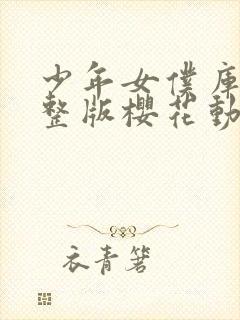 少年女僕庫
整版櫻花動
衣青箬